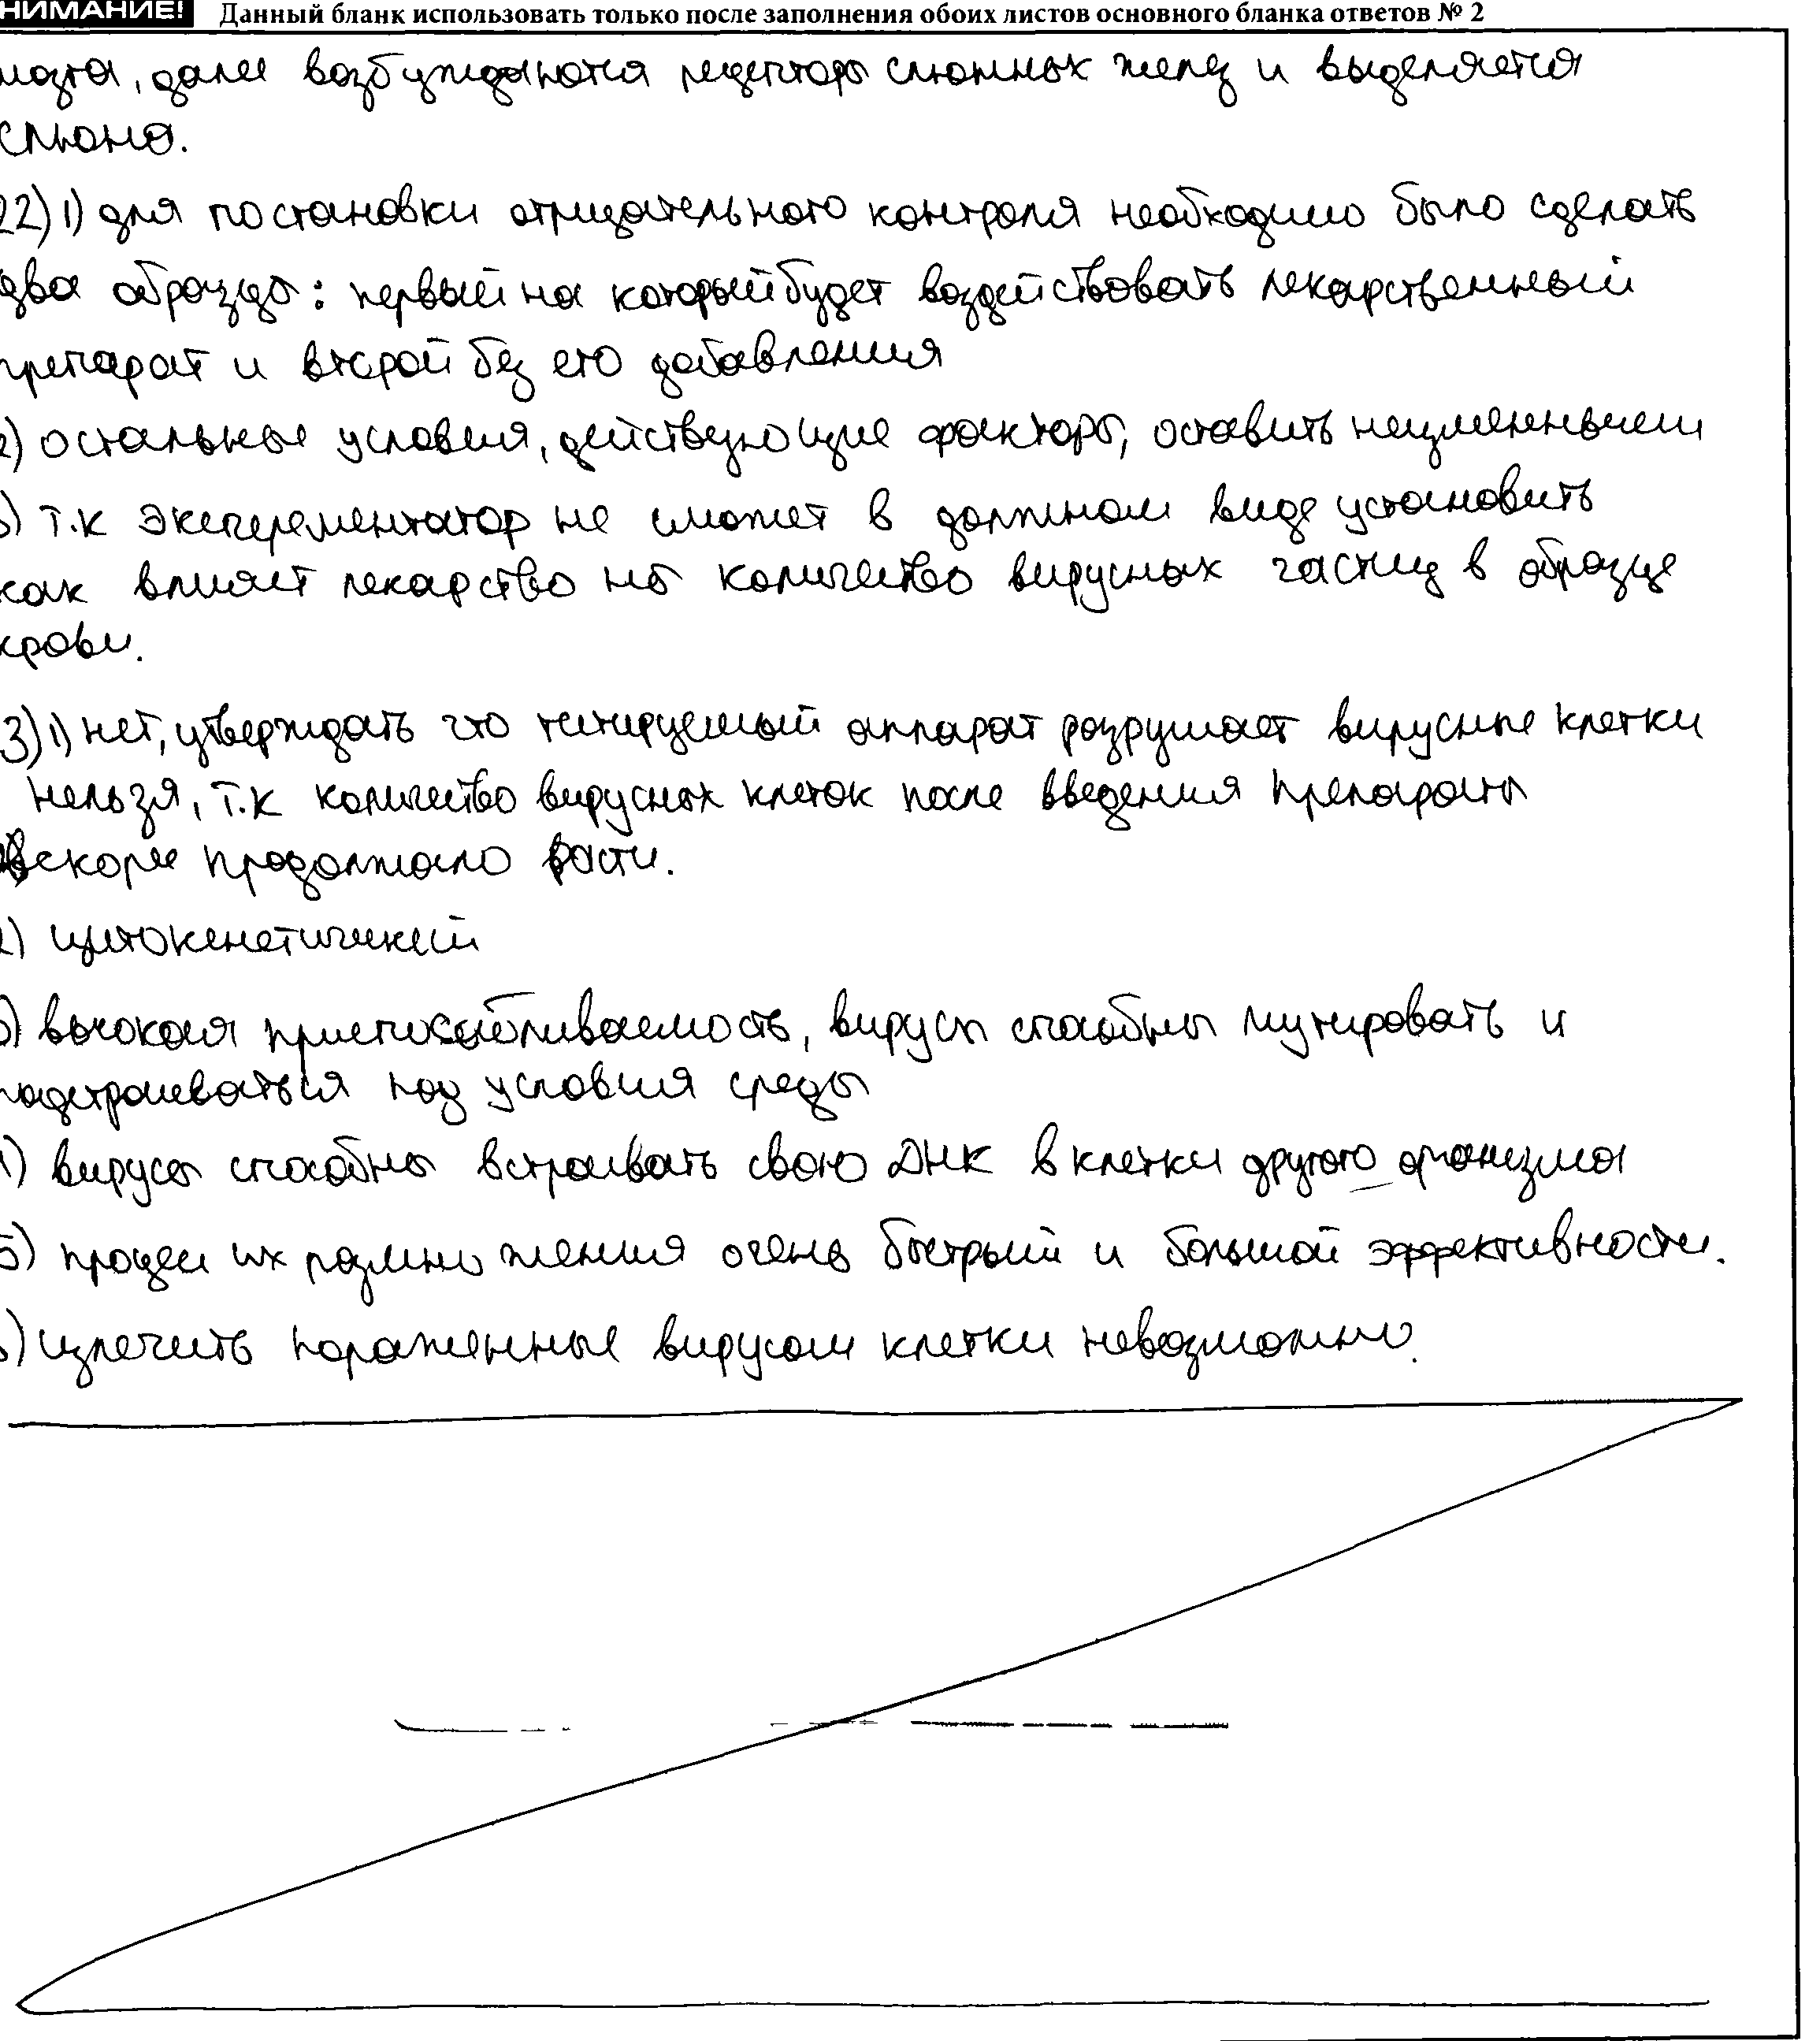 НИМАНИЕ! Данный бланк использовать только после заполнения обоих листов основного бланка ответов № 2
мозга, далее возбуждаются рецепторы слюнных желез и выделяется
слюна.
22) 1) для постановки отрицательного контроля необходимо было сделать
два образца: первый на который будет воздействовать лекарственный
препарат и второй без его добавления
2) остальные условия, действующие факторы, оставить неизменными
3) т.к эксперементатор не сможет в должном виде установить
как влияет лекарство на количество вирусных частиц в образце
крови.
3) 1) нет, утверждать что тестируемый аппарат разрушает вирусные клетки
нельзя, т.к количество вирусных клеток после введения препарата
вскоре продолжало расти.
2) цитокенетический
3) высокая приспосабливаемость, вирусы способны мутировать и
подстраиваться под условия среды
4) вирусы способны встраивать свою ДНК в клетки другого организма
5) процесс их размножения очень быстрый и большой эффективности.
6) излечить пораженные вирусом клетки невозможно.